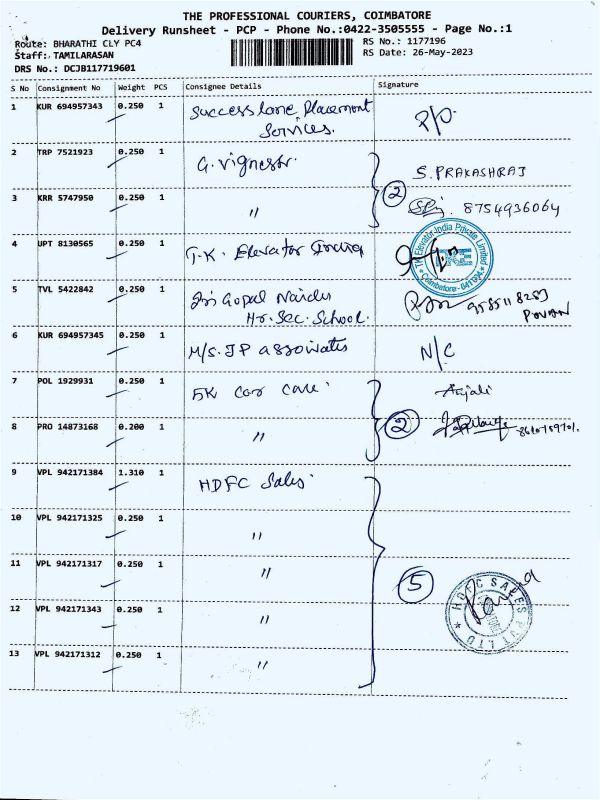 THE PROFESSIONAL COURIERS, COIMBATORE
Delivery Runsheet - PCP - Phone No.:0422-3505555 - Page No.:1
Route: BHARATHI CLY PC4
RS No.: 1177196
Staff: TAMILARASAN
RS Date: 26-May-2023
DRS No.: DCJB117719601
S No Consignment No Weight PCS Consignee Details Signature
1 KUR 694957343 0.250 1 Success Lane Placement
Services.
2 TRP 7521923 0.250 1 G. Vignesh. S. PRAKASHRAJ
2
3 KRR 5747950 0.250 1 " 8754936064
4 UPT 8130565 0.250 1 T.K. Elevator
TK Elevator India Private Limited
* Coimbatore - 641
5 TVL 5422842 0.250 1 Gopal Naidu
Hr. Sec. School.
6 KUR 694957345 0.250 1 M/S. JP associates N/C
7 POL 1929931 0.250 1 5K Car Care Anjali
2
8 PRO 14873168 0.200 1 "
9 VPL 942171384 1.310 1 HDFC Sales
10 VPL 942171325 0.250 1 "
11 VPL 942171317 0.250 1 "
5
HDFC SALES PVT LTD *
12 VPL 942171343 0.250 1 "
13 VPL 942171312 0.250 1 "